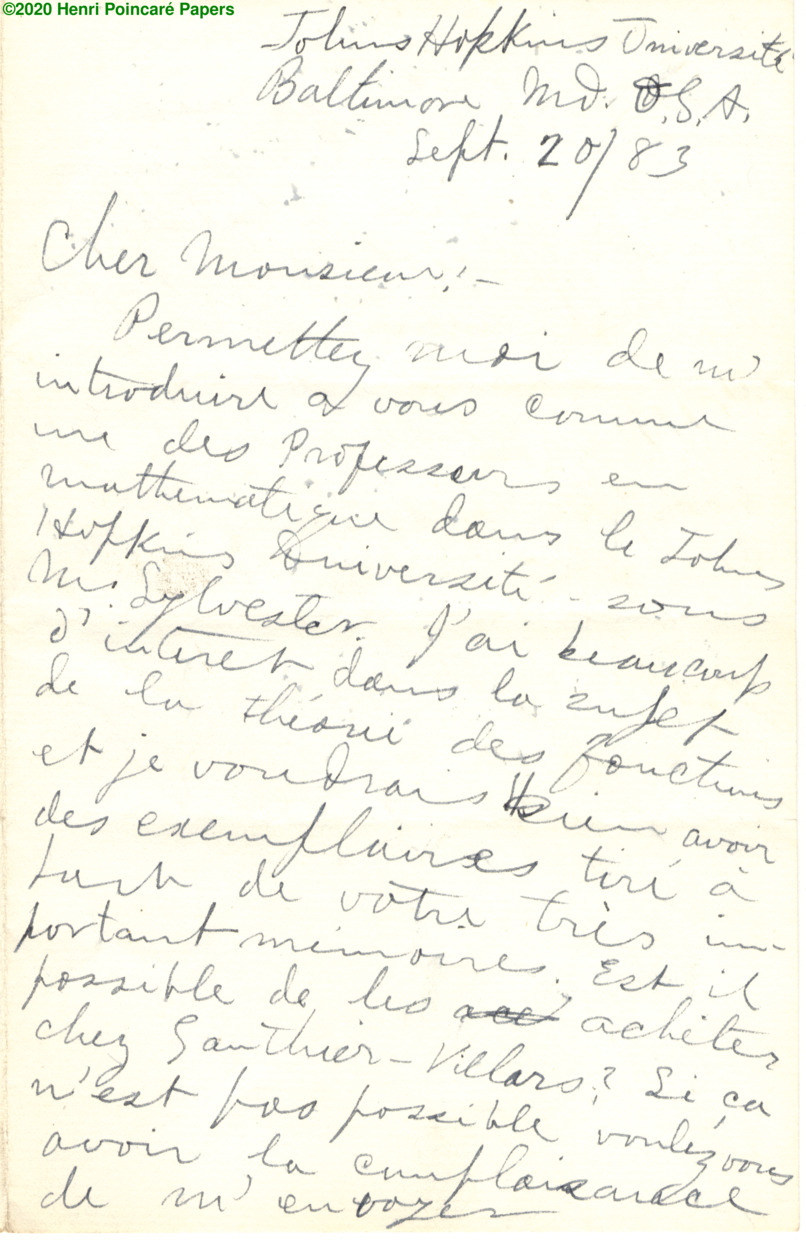 ©2020 Henri Poincaré Papers
Johns Hopkins Université
Baltimore Md. U.S.A.
Sept. 20/83
Cher Monsieur:—
Permettez moi de m'
introduire a vous comme
une des Professeurs en
mathematique dans le Johns
Hopkins Université – sous
Mr. Sylvester. J'ai beaucoup
d'interet dans la sujet
de la théorie des fonctions
et je voudrais bien avoir
des exemplaires tiré à
part de votre très im-
portant mémoires. Est il
possible de les acheter
chez Gauthier–Villars? Si ça
n'est pas possible voulez vous
avoir la complaisance
de m'envoyer